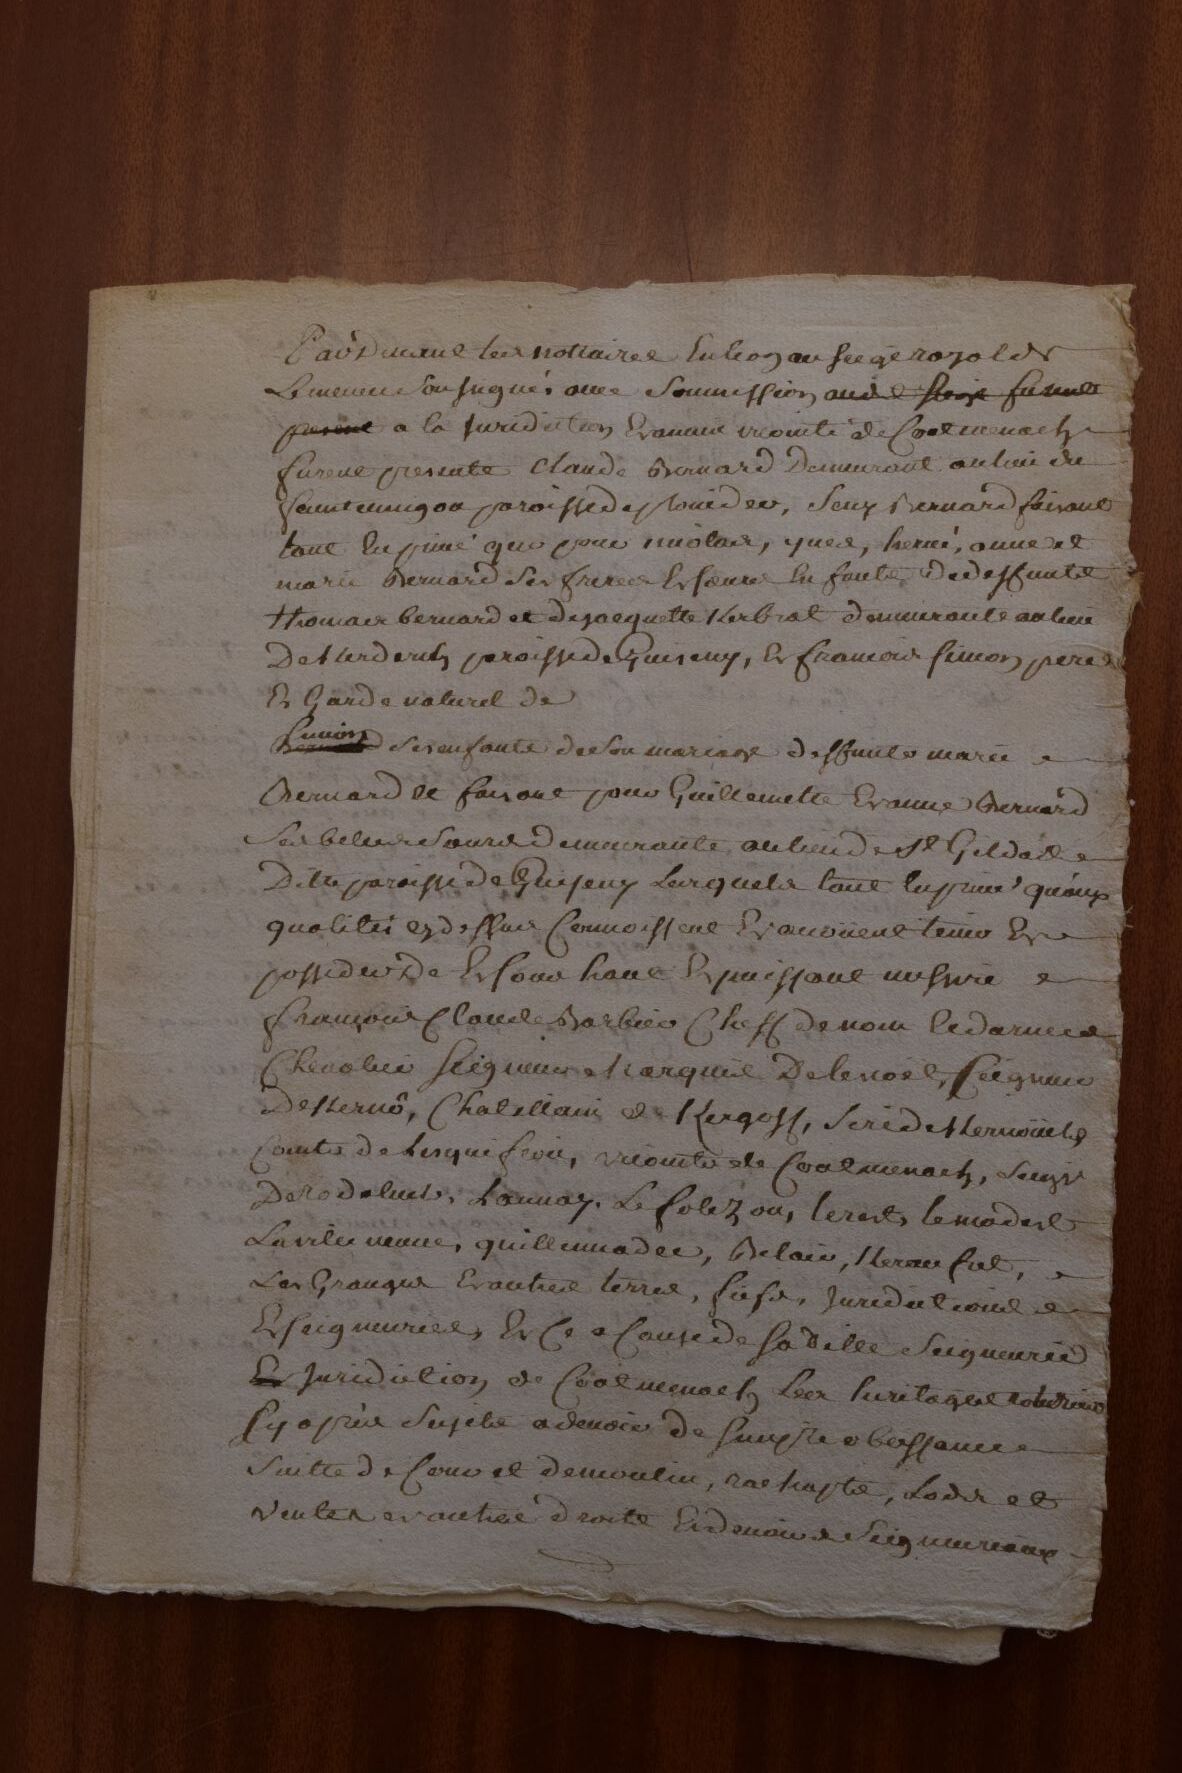 Pardevant les nottaires en leon au siege royal de
Lesneven soussignés avec soumission audit siege furent
present a la Juridiction Ecanancienne vicomté de Coatmenach
furent presents Claude Bernard demeurant au lieu de
paroisse de plouider, Bernard faisant
tant en privé que pour nicolas, yves, hervé, anne et
marie Bernard ses freres et sœurs enfants de deffunts
Thomas bernard et de jacquette Kerbrat demeurants au lieu
De paroisse de Guiseny, Et francois simon pere
Et Garde naturel de
simon
Bernard ses enfants de son mariage deffunte marie
Bernard et faisant pour Guillemette Et anne Bernard
Ses belles sœurs demeurante au lieu de St Gildas
Ditte paroisse de Guiseny Lesquels tant en privé qu'aux
qualités cy dessus Connoissent Et avoüent tenir Et
posseder de Et sous haut Et puissant messire
francois Claude Barbier Cheff de nom et d'armes
Chevalier Seigneur Marquis De lesnoël, Seigneur
De Kernô, Chatellain de Kergoff, Sire de Kernoüel
Comte de Lesquifiou, vicomte de Coatmenach, Seigr
De rodalvez, Launay, Le folezou, lerest, lemodest
La ville neuve, quillimadec, Belair,
Les Granges Et autres terres, fiefs, Juridictions
Et seigneuries, Et Ce a Cause de sa ditte Seigneurie
Et Juridiction de Coatmenach Les heritages
Cy apres Sujets a devoir de simple obeissance
Suitte de Cour et de moulin, rachapts, Lods et
Ventes et autres droits Et devoirs Seigneuriaux